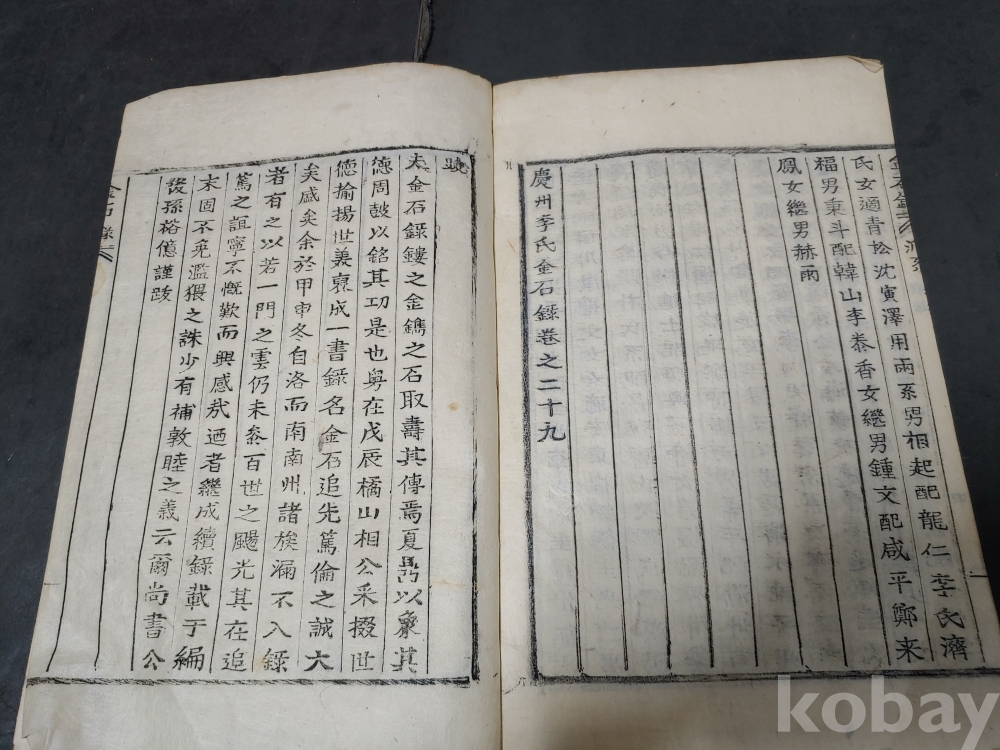 氏女適青松沈寅澤用雨系男相起配龍仁李氏濟
福男秉斗配韓山李泰香女繼男鍾文配咸平鄭来
鳳女繼男赫雨
慶州李氏金石錄卷之二十九
跋
夫金石錄鏤之金鐫之石取壽其傳焉夏鼎以象其
德周鼓以銘其功是也粤在戊辰橘山相公采掇世
德揄揚世美裒成一書錄名金石追先篤倫之誠大
矣盛矣余於甲申冬自洛而南南州諸族漏不入錄
者有之以若一門之雲仍未叅百世之颺光其在追
篤之誼寧不慨歎而興感哉迺者繼成續錄載于編
末固不免濫猥之誅少有補敦睦之義云爾尚書公
後孫裕億謹跋
kobay